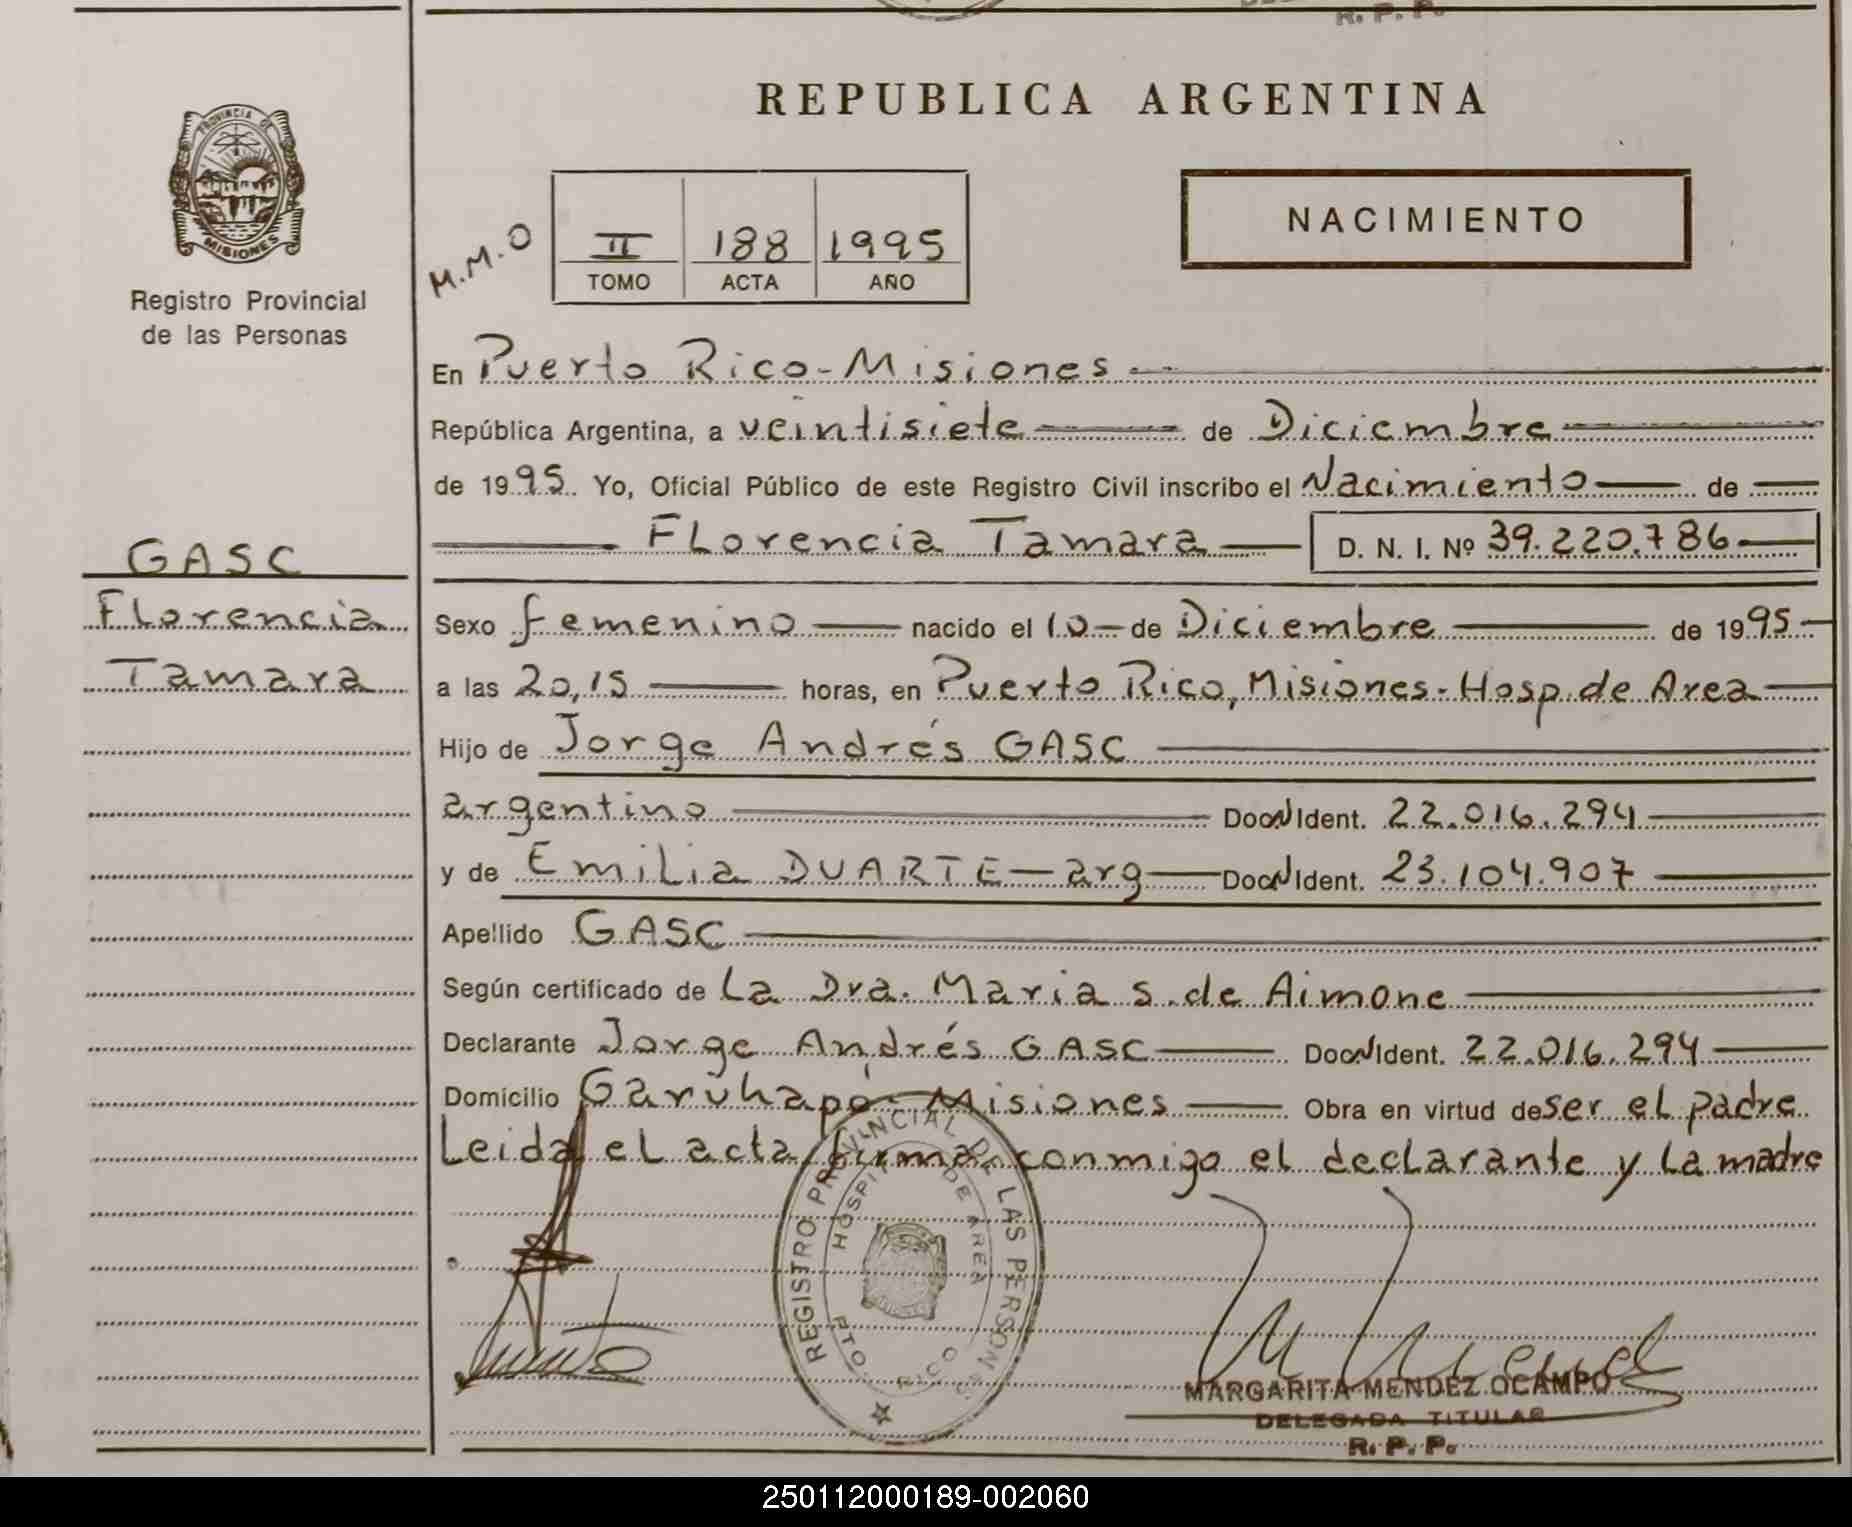 R. P. P.
REPUBLICA ARGENTINA
PROVINCIA DE
MISIONES
Registro Provincial
de las Personas
M.M.O
II 188 1995
TOMO ACTA AÑO
NACIMIENTO
En Puerto Rico - Misiones
República Argentina, a veintisiete de Diciembre
de 1995. Yo, Oficial Público de este Registro Civil inscribo el Nacimiento de
Florencia Tamara D. N. I. Nº 39.220.786
GASC
Florencia
Tamara
Sexo femenino nacido el 10 de Diciembre de 1995
a las 20,15 horas, en Puerto Rico, Misiones - Hosp. de Area
Hijo de Jorge Andrés GASC
argentino Doc. N Ident. 22.016.294
y de Emilia DUARTE - arg Doc. N Ident. 23.104.907
Apellido GASC
Según certificado de La Dra. Maria S. de Aimone
Declarante Jorge Andrés GASC Doc. N Ident. 22.016.294
Domicilio Garuhapé - Misiones Obra en virtud de ser el padre
Leida el acta firma conmigo el declarante y la madre
REGISTRO PROVINCIAL DE LAS PERSONAS
HOSPITAL DE AREA
PTO. RICO
MARGARITA MENDEZ OCAMPO
DELEGADA TITULAR
R. P. P.
250112000189-002060